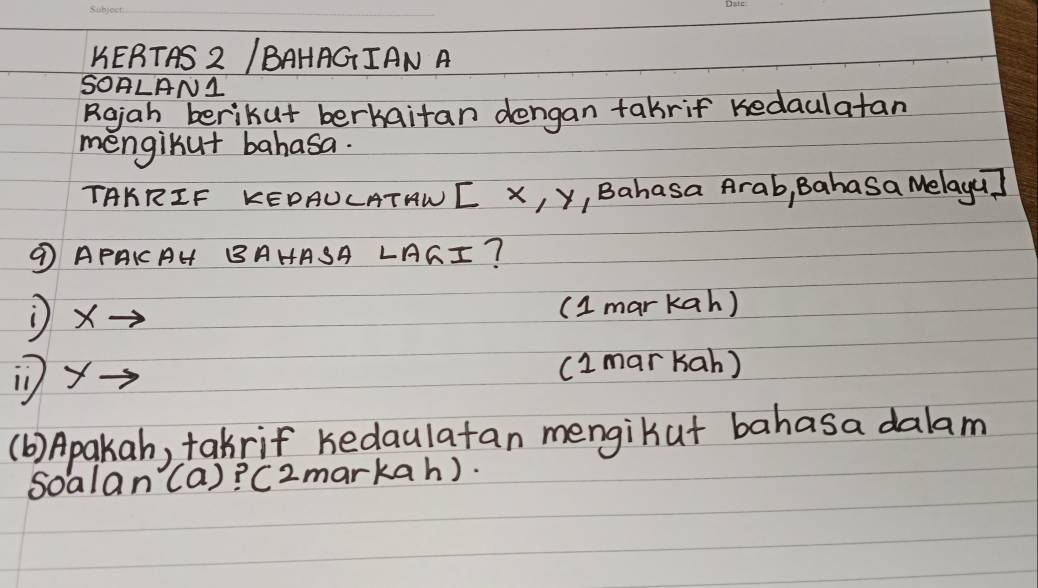 Subject:
Date:
KERTAS 2 / BAHAGIAN A
SOALAN 1
Rajah berikut berkaitan dengan takrif kedaulatan
mengikut bahasa.
TAKRIF KEDAULATAN [ X, Y, Bahasa Arab, Bahasa Melayu]
a) APAKAH BAHASA LAGI?
i) X → (1 markah)
ii) Y → (1 markah)
(b) Apakah, takrif kedaulatan mengikut bahasa dalam
soalan (a)? (2 markah).